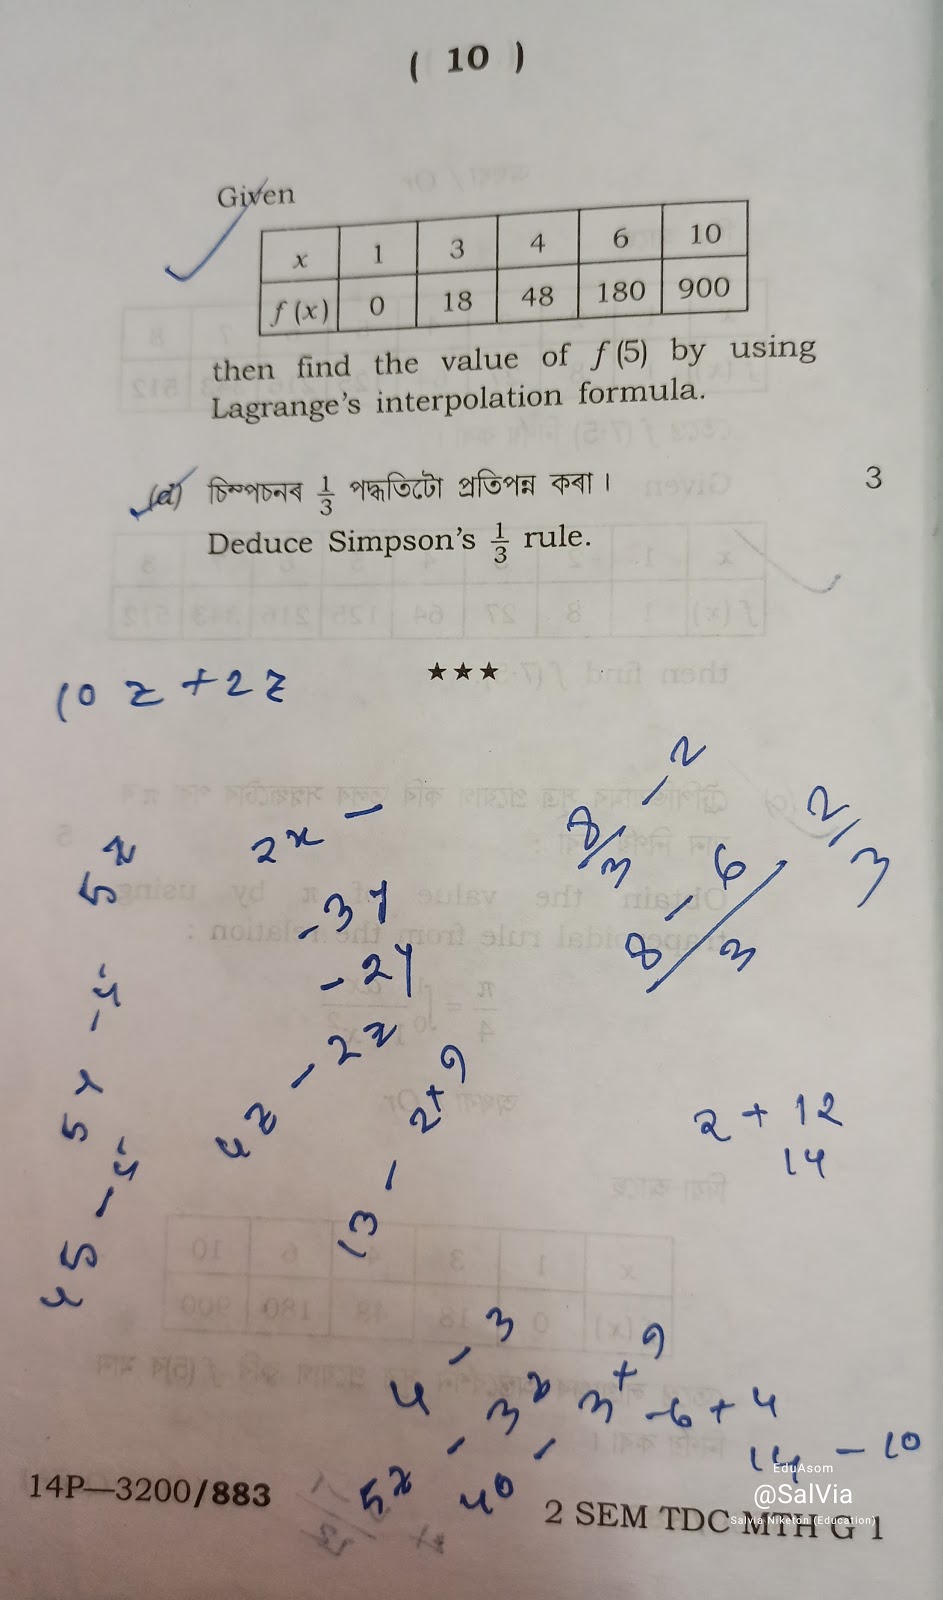 ( 10 )
Given
x 1 3 4 6 10
f (x) 0 18 48 180 900
then find the value of f (5) by using
Lagrange's interpolation formula.
(d) চিম্পচনৰ 1/3 পদ্ধতিটো প্ৰতিপন্ন কৰা। 3
Deduce Simpson's 1/3 rule.
★★★
10 z + 2z
2x -
- 3y
- 2y
4z - 2x
8/3 - 2
8 - 6/3
2/3
13 - 2+9
2 + 12
14
4 - 3
3+9
- 6 + 4
14 - 10
14P—3200/883
2 SEM TDC MTH G 1
EduAsom
@SalVia
Salvia Niketon (Education)